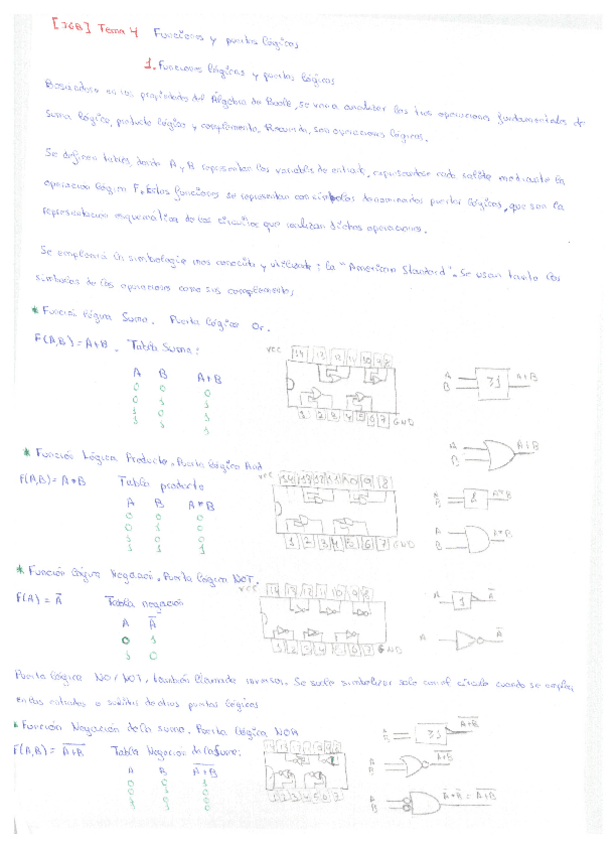 [JGB] Tema 4 Funciones y puertas lógicas
1. Funciones lógicas y puertas lógicas
Basándose en las propiedades del Álgebra de Boole, se van a analizar las tres operaciones fundamentales de
suma lógica, producto lógico y complemento. Recuerda, son operaciones lógicas.
Se definen tablas, donde A y B representan las variables de entrada, expresándose cada salida mediante la
operación lógica F. Estas funciones se representan con símbolos denominados puertas lógicas, que son la
representación esquemática de los circuitos que realizan dichas operaciones.
Se empleará la simbología más conocida y utilizada: la "American Standard". Se usan tanto los
símbolos de las operaciones como sus complementos;
* Función lógica Suma. Puerta lógica Or.
F(A,B) = A+B. Tabla Suma:
A B A+B
0 0 0
0 1 1
1 0 1
1 1 1
VCC 14 13 12 11 10 9 8
1 2 3 4 5 6 7 GND
A
B ≥1 A+B
A
B A+B
* Función Lógica Producto. Puerta lógica And
F(A,B) = A*B Tabla producto
A B A*B
0 0 0
0 1 0
1 0 0
1 1 1
VCC 14 13 12 11 10 9 8
1 2 3 4 5 6 7 GND
A
B & A*B
A
B A*B
* Función lógica Negación. Puerta lógica NOT.
F(A) = A̅ Tabla negación
A A̅
0 1
1 0
VCC 14 13 12 11 10 9 8
1 2 3 4 5 6 7 GND
A 1 A̅
A A̅
Puerta lógica NO/NOT, también llamada inversor. Se suele simbolizar solo con el círculo cuando se emplea
en las entradas o salidas de otras puertas lógicas
* Función Negación de la suma. Puerta lógica NOR
F(A,B) = A̅+̅B̅ Tabla Negación de la Suma:
A B A̅+̅B̅
0 0 1
0 1 0
1 0 0
1 1 0
14 13 12 11 10 9 8
1 2 3 4 5 6 7
A
B ≥1 A̅+̅B̅
A
B A̅+̅B̅
A
B A̅*B̅ = A̅+̅B̅